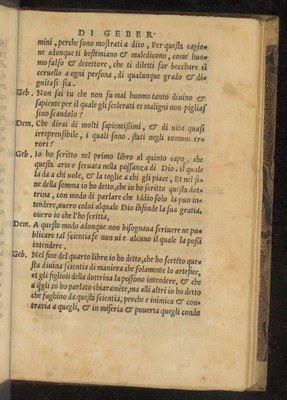 DI GEBER.
mini, perche sono mostrati a dito, Per questa cagio=
ne adonque ti bestemiano & maledicono, come huo=
mo falso & decettore, che ti diletti far becchare il
ceruello a ogni persona, di qualunque grado & di=
gnita si sia.
Geb. Non sai tu che non fu mai huomo tanto diuino &
sapiente per il quale gli scelerati et maligni non piglias
sino scandolo?
Dem. Che dirai di molti sapientissimi, & di uita quasi
irreprensibile, i quali sono stati negli comuni er=
rori?
Geb. Io ho scritto nel primo libro al quinto capo, che
questa arte e seruata nella possanza di Dio, il quale
la da a chi uole, & la toglie a chi gli piace, Et nel fi=
ne della somma io ho detto, che io ho scritto questa dot=
trina, con modo di parlare che Iddio solo la puo in=
tendere, ouero colui al quale Dio infonde la sua gratia,
ouero io che l'ho scritta,
Dem. A questo modo adonque non bisognaua scriuere ne pu=
blicare tal scientia se non ui e alcuno il quale la possi
intendere.
Geb. Nel fine del quarto libro io ho detto, che ho scritto que=
sta diuina scientia di maniera che solamente lo artefice,
et gli figlioli della dottrina la possono intendere, & che
a q̃gli io ho parlato chiaramẽte, ma alli altri io ho detto
che fughino da questa scientia, perche e inimica & con=
traria a quegli, & in miseria & pouerta quegli condu